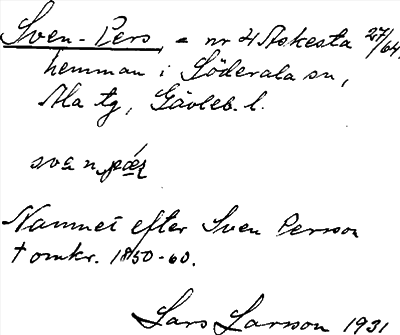 Sven-Pers, = nr 4 Askesta 27/64.
hemman i Söderala sn,
Ala tg, Gävleb. l.
svɛn pær
Namnet efter Sven Persson
† omkr. 1850-60.
Lars Larsson 1931